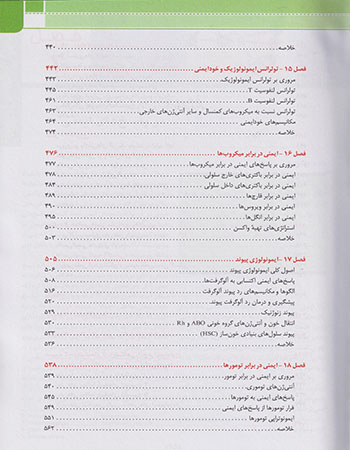 خلاصه ........ ۴۴۰
فصل ۱۵ - تولرانس ایمونولوژیک و خودایمنی ........ ۴۴۳
مروری بر تولرانس ایمونولوژیک ........ ۴۴۳
تولرانس لنفوسیت T ........ ۴۴۵
تولرانس لنفوسیت B ........ ۴۶۱
تولرانس نسبت به میکروب‌های کمنسال و سایر آنتی‌ژن‌های خارجی ........ ۴۶۳
مکانیسم‌های خودایمنی ........ ۴۶۴
خلاصه ........ ۴۷۴
فصل ۱۶ - ایمنی در برابر میکروب‌ها ........ ۴۷۶
مروری بر پاسخ‌های ایمنی در برابر میکروب‌ها ........ ۴۷۷
ایمنی در برابر باکتری‌های خارج سلولی ........ ۴۷۸
ایمنی در برابر باکتری‌های داخل سلولی ........ ۴۸۴
ایمنی در برابر قارچ‌ها ........ ۴۸۹
ایمنی در برابر ویروس‌ها ........ ۴۹۰
ایمنی در برابر انگل‌ها ........ ۴۹۵
استراتژی‌های تهیهٔ واکسن ........ ۵۰۰
خلاصه ........ ۵۰۳
فصل ۱۷ - ایمونولوژی پیوند ........ ۵۰۵
اصول کلی ایمونولوژی پیوند ........ ۵۰۶
پاسخ‌های ایمنی اکتسابی به آلوگرفت‌ها ........ ۵۰۸
الگوها و مکانیسم‌های رد پیوند آلوگرفت ........ ۵۱۶
پیشگیری و درمان رد آلوگرفت پیوند ........ ۵۲۰
پیوند زنوژنیک ........ ۵۲۹
انتقال خون و آنتی‌ژن‌های گروه خونی ABO و Rh ........ ۵۳۰
پیوند سلول‌های بنیادی خون‌ساز (HSC) ........ ۵۳۳
خلاصه ........ ۵۳۶
فصل ۱۸ - ایمنی در برابر تومورها ........ ۵۳۸
مروری بر ایمنی در برابر تومور ........ ۵۳۹
آنتی‌ژن‌های توموری ........ ۵۴۰
پاسخ‌های ایمنی به تومورها ........ ۵۴۵
فرار تومورها از پاسخ‌های ایمنی ........ ۵۴۹
ایمونوتراپی تومورها ........ ۵۵۱
خلاصه ........ ۵۶۲